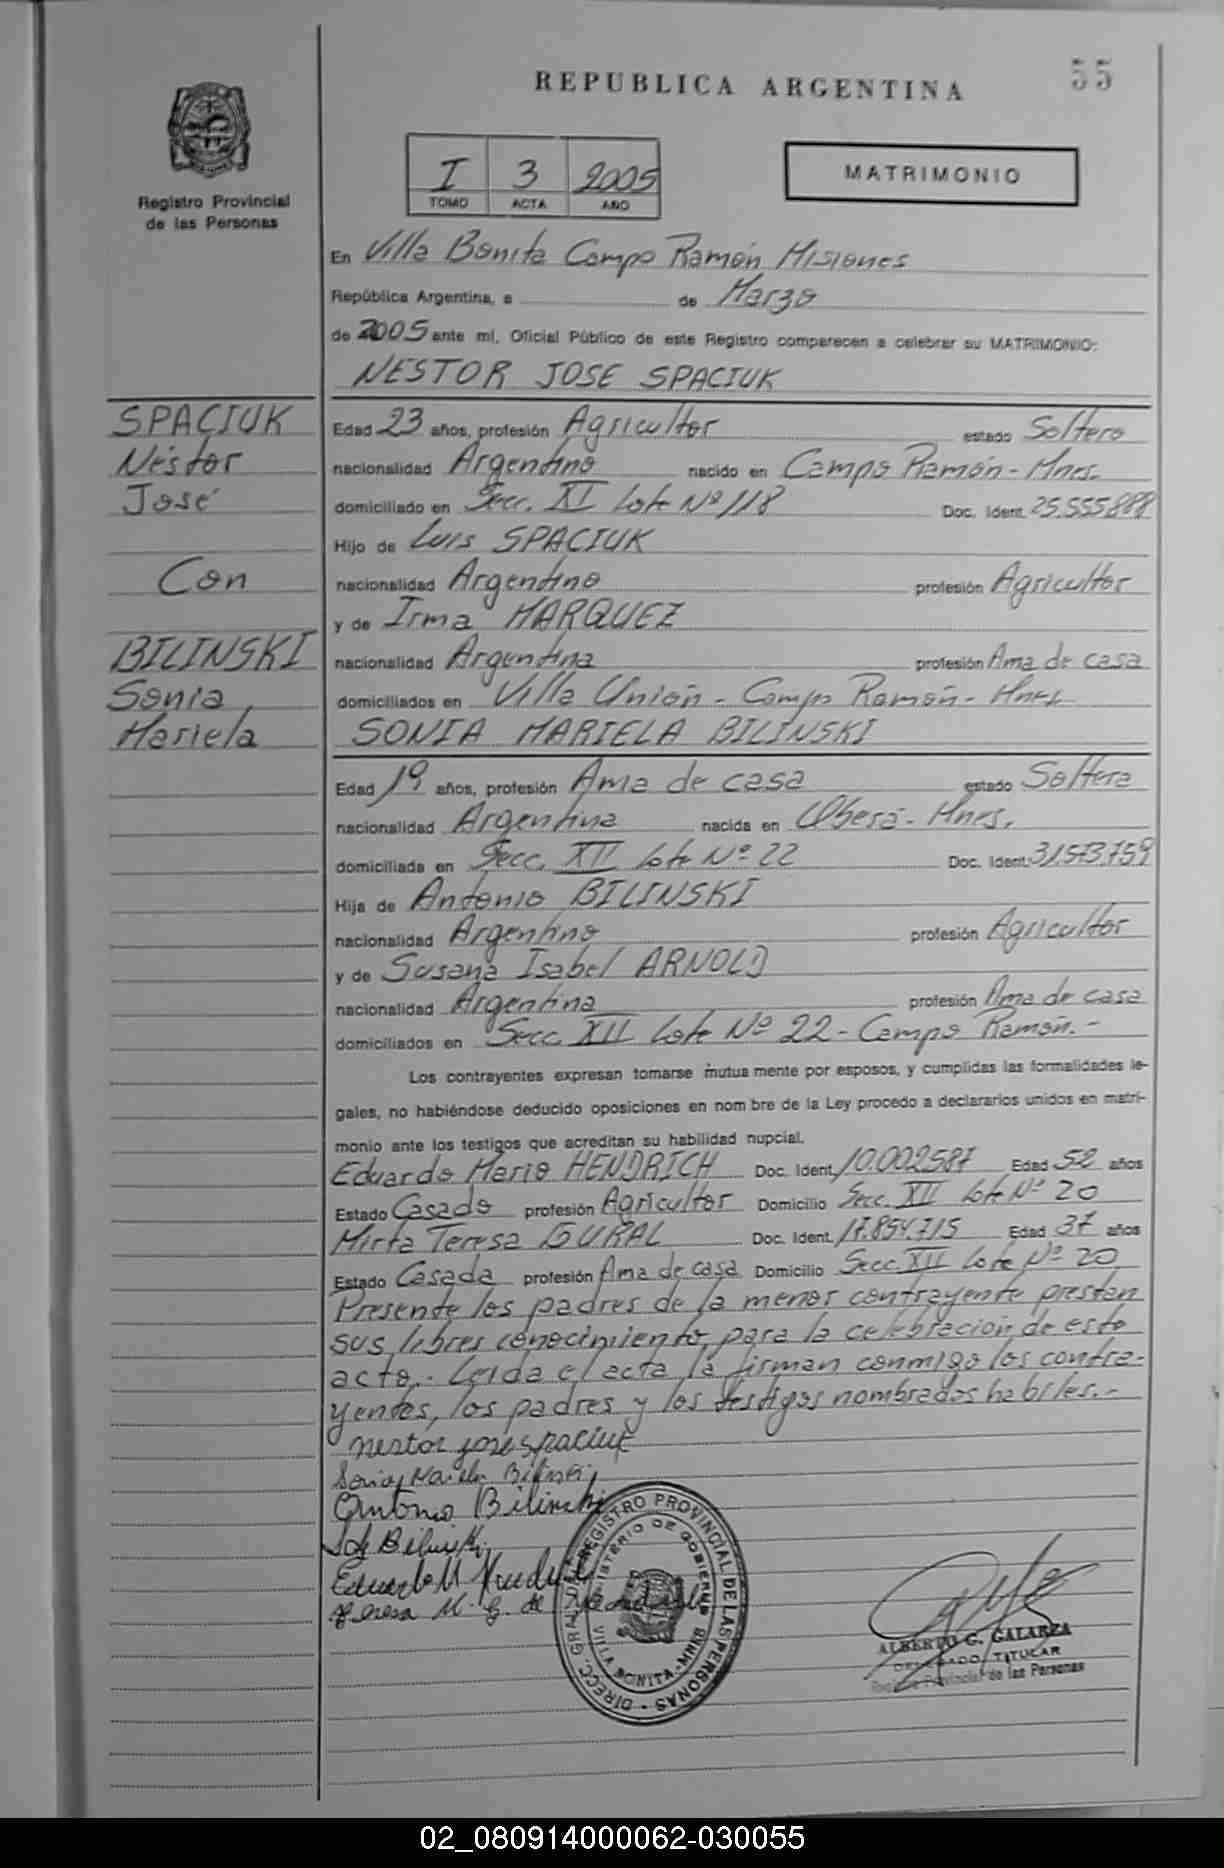 55
REPUBLICA ARGENTINA
Registro Provincial
de las Personas
I 3 2005
TOMO ACTA AÑO
MATRIMONIO
En Villa Bonita Campo Ramón Misiones
República Argentina, a de Marzo
de 2005 ante mí, Oficial Público de este Registro comparecen a celebrar su MATRIMONIO:
NESTOR JOSE SPACIUK
SPACIUK
Néstor
José
Con
BILINSKI
Sonia
Mariela
Edad 23 años, profesión Agricultor estado Soltero
nacionalidad Argentino nacido en Campo Ramón - Mnes.
domiciliado en Secc. XI Lote Nº 118 Doc. Ident. 25.555.888
Hijo de Luis SPACIUK
nacionalidad Argentino profesión Agricultor
y de Irma MARQUEZ
nacionalidad Argentina profesión Ama de casa
domiciliados en Villa Unión - Campo Ramón - Mnes.
SONIA MARIELA BILINSKI
Edad 19 años, profesión Ama de casa estado Soltera
nacionalidad Argentina nacida en Oberá - Mnes.
domiciliada en Secc. XII Lote Nº 22 Doc. Ident. 31.573.759
Hija de Antonio BILINSKI
nacionalidad Argentino profesión Agricultor
y de Susana Isabel ARNOLD
nacionalidad Argentina profesión Ama de casa
domiciliados en Secc. XII Lote Nº 22 - Campo Ramón.-
Los contrayentes expresan tomarse mutua mente por esposos, y cumplidas las formalidades le-
gales, no habiéndose deducido oposiciones en nom bre de la Ley procedo a declararlos unidos en matri-
monio ante los testigos que acreditan su habilidad nupcial.
Eduardo Mario HENDRICH Doc. Ident. 10.002587 Edad 52 años
Estado Casado profesión Agricultor Domicilio Secc. XII Lote Nº 20
Mirta Teresa GURAL Doc. Ident. 17.854.715 Edad 37 años
Estado Casada profesión Ama de casa Domicilio Secc. XII Lote Nº 20
Presente los padres de la menor contrayente prestan
sus libres conocimiento para la celebración de este
acto.- Leida el acta la firman conmigo los contra-
yentes, los padres y los testigos nombrados habiles.-
nestor jose spaciuk
Sonia Mariela Bilinski
Antonio Bilinski
Bilinski
Eduardo M
Teresa M. G. de
DIRECC. GRAL. DEL REGISTRO PROVINCIAL DE LAS PERSONAS
MINISTERIO DE GOBIERNO
VILLA BONITA - MNES
ALBERTO G. GALARZA
DELEGADO TITULAR
Registro Provincial de las Personas
02_080914000062-030055